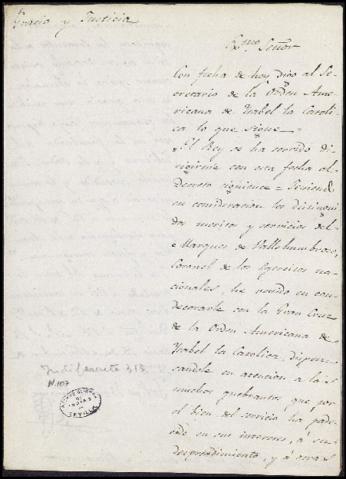 Gracia y Justicia
Exmo. Señor
Con fecha de hoy digo al Se-
cretario de la Orden Ame-
ricana de Ysabel la Catoli-
ca lo que sigue =
El Rey se ha servido di-
rigirme con esta fecha el
Decreto siguiente = Teniendo
en consideracion los distingui-
dos meritos y servicios del
Marques de Valleumbroso,
Coronel de los Egercitos na-
cionales, he venido en con-
decorarle con la Gran Cruz
de la Orden Americana de
Ysabel la Catolica, dispen-
sandole en atencion a los
muchos quebrantos que por
el bien del servicio ha pade-
cido en sus intereses, á su
desprendimiento, y á otras
Indiferente
N. 107
ARCHIVO GENERAL
DE
INDIAS
SEVILLA